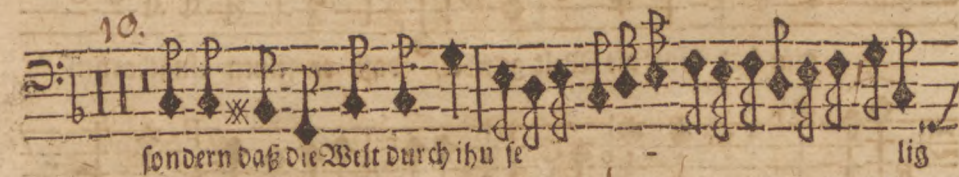 10.
ſondern daß die Welt durch ihn ſe - lig